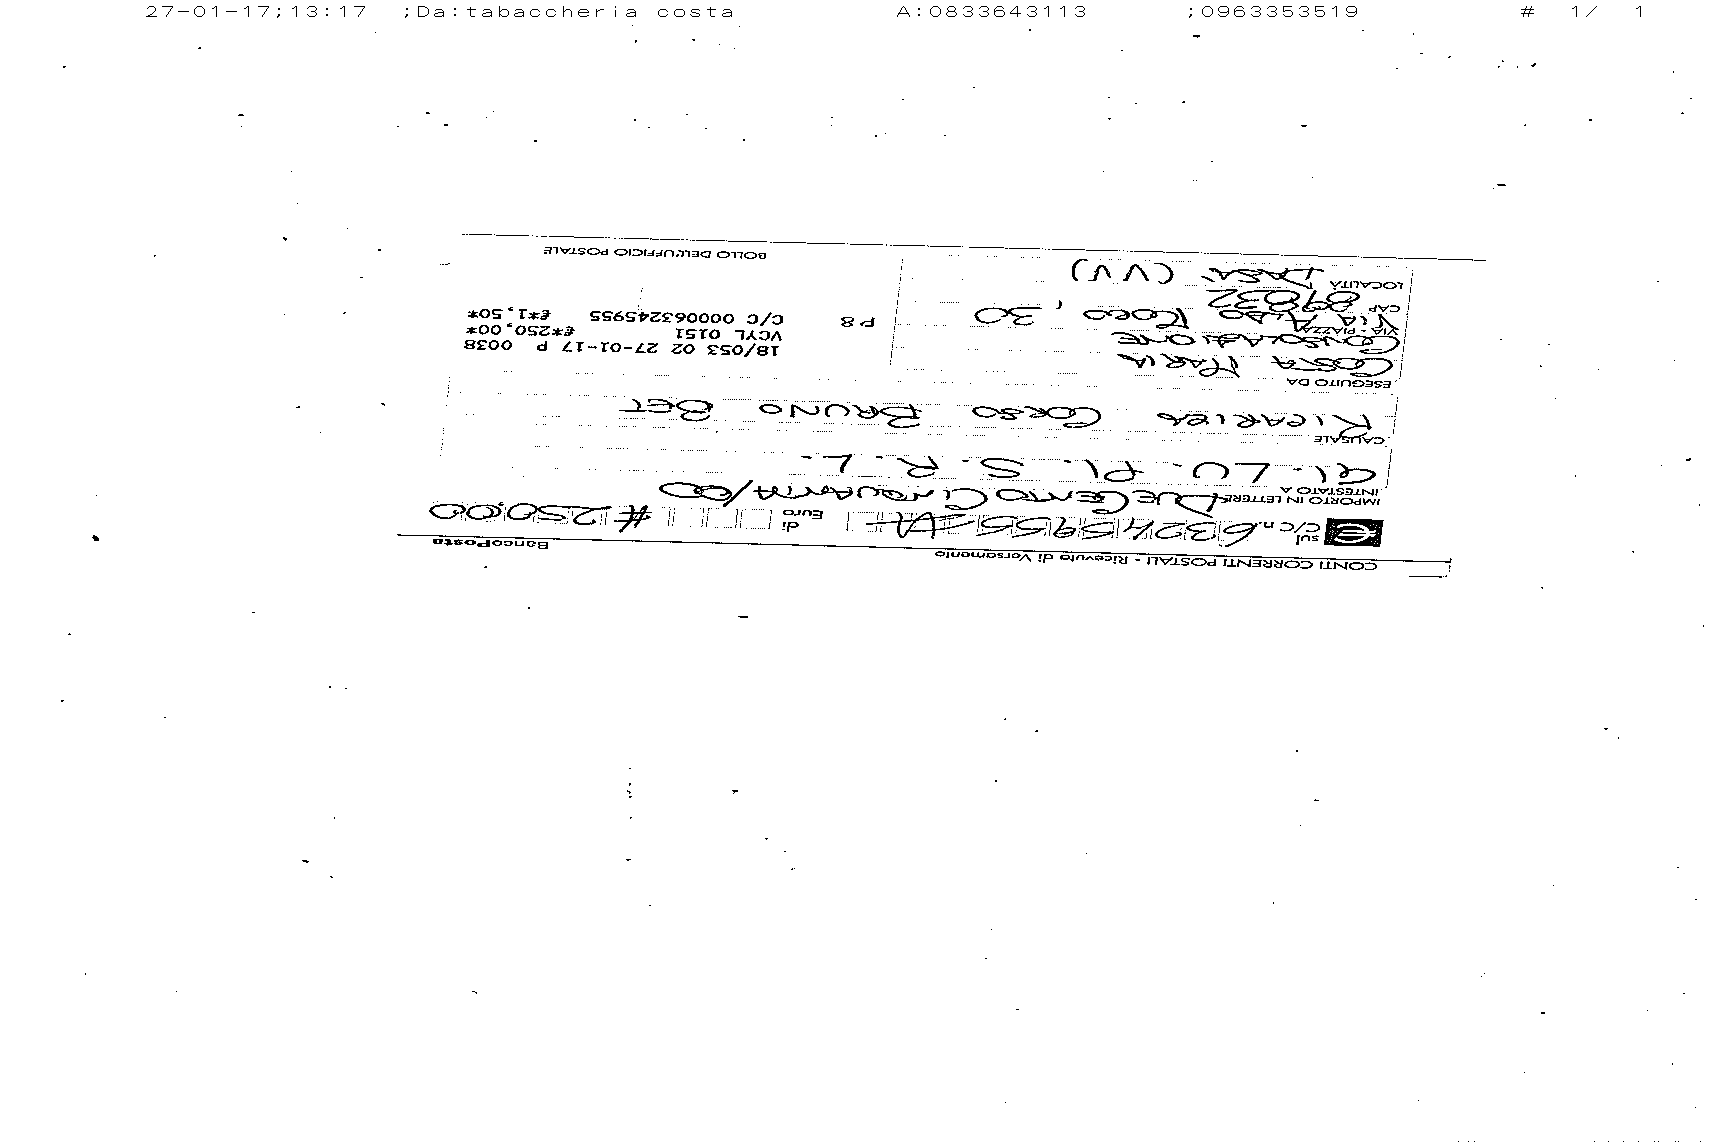 27-01-17;13:17 ;Da:tabaccheria costa A:0833643113 ;0963353519 # 1/ 1
CONTI CORRENTI POSTALI - Ricevuta di Versamento BancoPosta
€ sul c/c n. 63245955 di Euro # 250,00
IMPORTO IN LETTERE DUECENTOCINQUANTA/00
INTESTATO A
GI. LU. PI. S. R. L.
CAUSALE
RICARICA CORSO BRUNO BET
ESEGUITO DA
COSTA MARIA
CONSOLAZIONE
VIA - PIAZZA VIA ALDO MORO, 30
CAP 89832
LOCALITÀ DASA' (VV)
18/053 02 27-01-17 P 0038
VCYL 0151 €*250,00*
P8 C/C 000063245955 €*1,50*
BOLLO DELL'UFFICIO POSTALE